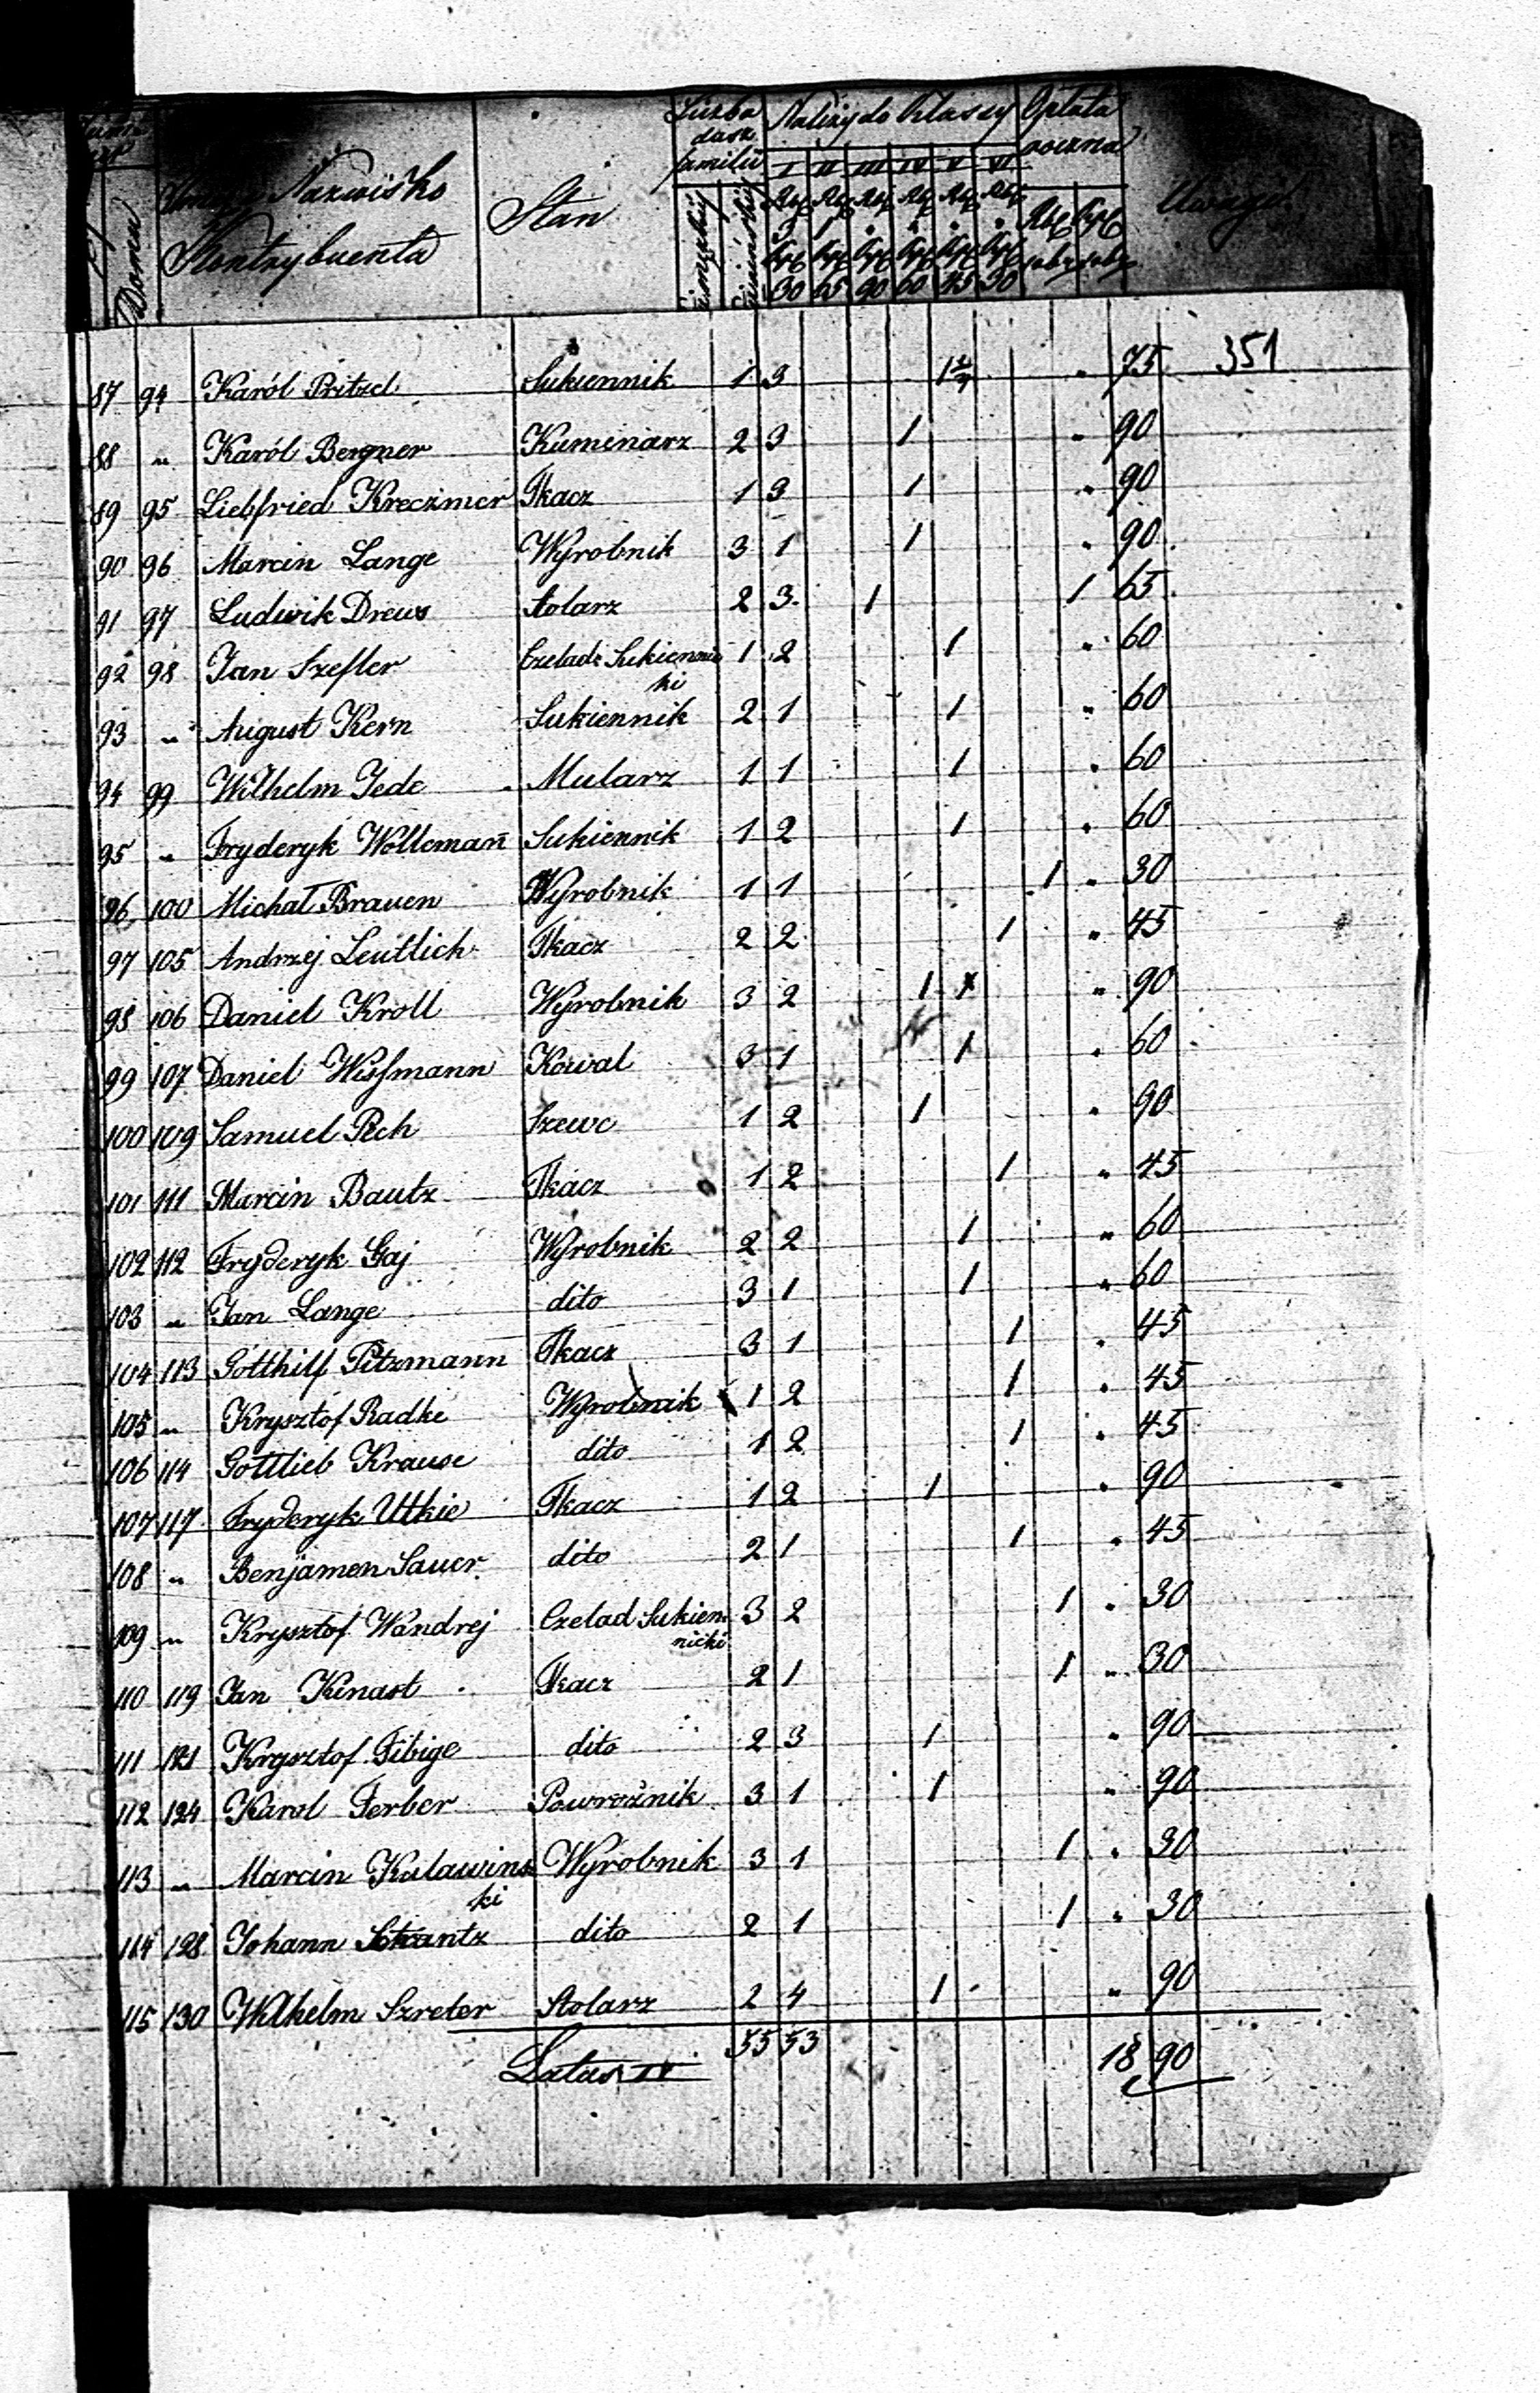 Domu
Nazwisko
Kontrybuenta
Stan
Liczba dusz familii
Należy do Klassy
Opłata roczna
Uwagi
I II III IV V VI
Rbs Rbs Rbs Rbs Rbs Rbs
3 1 " " " "
kop kop kop kop kop kop
30 65 90 60 45 30
351
87 94 Karól Pritzel Sukiennik 1 3 1 " 75
88 " Karól Bergner Kumeniarz 2 3 1 " 90
89 95 Liebfried Kreczmer Tkacz 1 3 1 " 90
90 96 Marcin Lange Wyrobnik 3 1 1 " 90
91 97 Ludwik Drews Stolarz 2 3 1 1 65
92 98 Jan Szefler Czeladz Sukiennicki 1 2 1 " 60
93 " August Kern Sukiennik 2 1 1 " 60
94 99 Wilhelm Jede Mularz 1 1 1 " 60
95 " Fryderyk Wolleman̄ Sukiennik 1 2 1 " 60
96 100 Michał Brauen Wyrobnik 1 1 1 " 30
97 105 Andrzej Leutlich Tkacz 2 2 1 " 45
98 106 Daniel Kroll Wyrobnik 3 2 1 " 90
99 107 Daniel Wissmann Kowal 3 1 1 " 60
100 109 Samuel Pech Szewc 1 2 1 " 90
101 111 Marcin Bautz Tkacz 1 2 1 " 45
102 112 Fryderyk Gaj Wyrobnik 2 2 1 " 60
103 " Jan Lange dito 3 1 1 " 60
104 113 Gotthilf Pitzmann Tkacz 3 1 1 " 45
105 " Krysztof Radke Wyrobnik 1 2 1 " 45
106 114 Gottlieb Krause dito 1 2 1 " 45
107 117 Fryderyk Utkie Tkacz 1 2 1 " 90
108 " Benjamen Sauer dito 2 1 1 " 45
109 " Krysztof Wandrej Czelad Sukiennicki 3 2 1 " 30
110 119 Jan Kinast Tkacz 2 1 1 " 30
111 121 Krysztof Fibige dito 2 3 1 " 90
112 124 Karol Ferber Powroźnik 3 1 1 " 90
113 " Marcin Kulawinski Wyrobnik 3 1 1 " 30
114 128 Johann dito 2 1 1 " 30
115 130 Wilhelm Szreter Stolarz 2 4 1 " 90
Latus IV 55 53 18 90